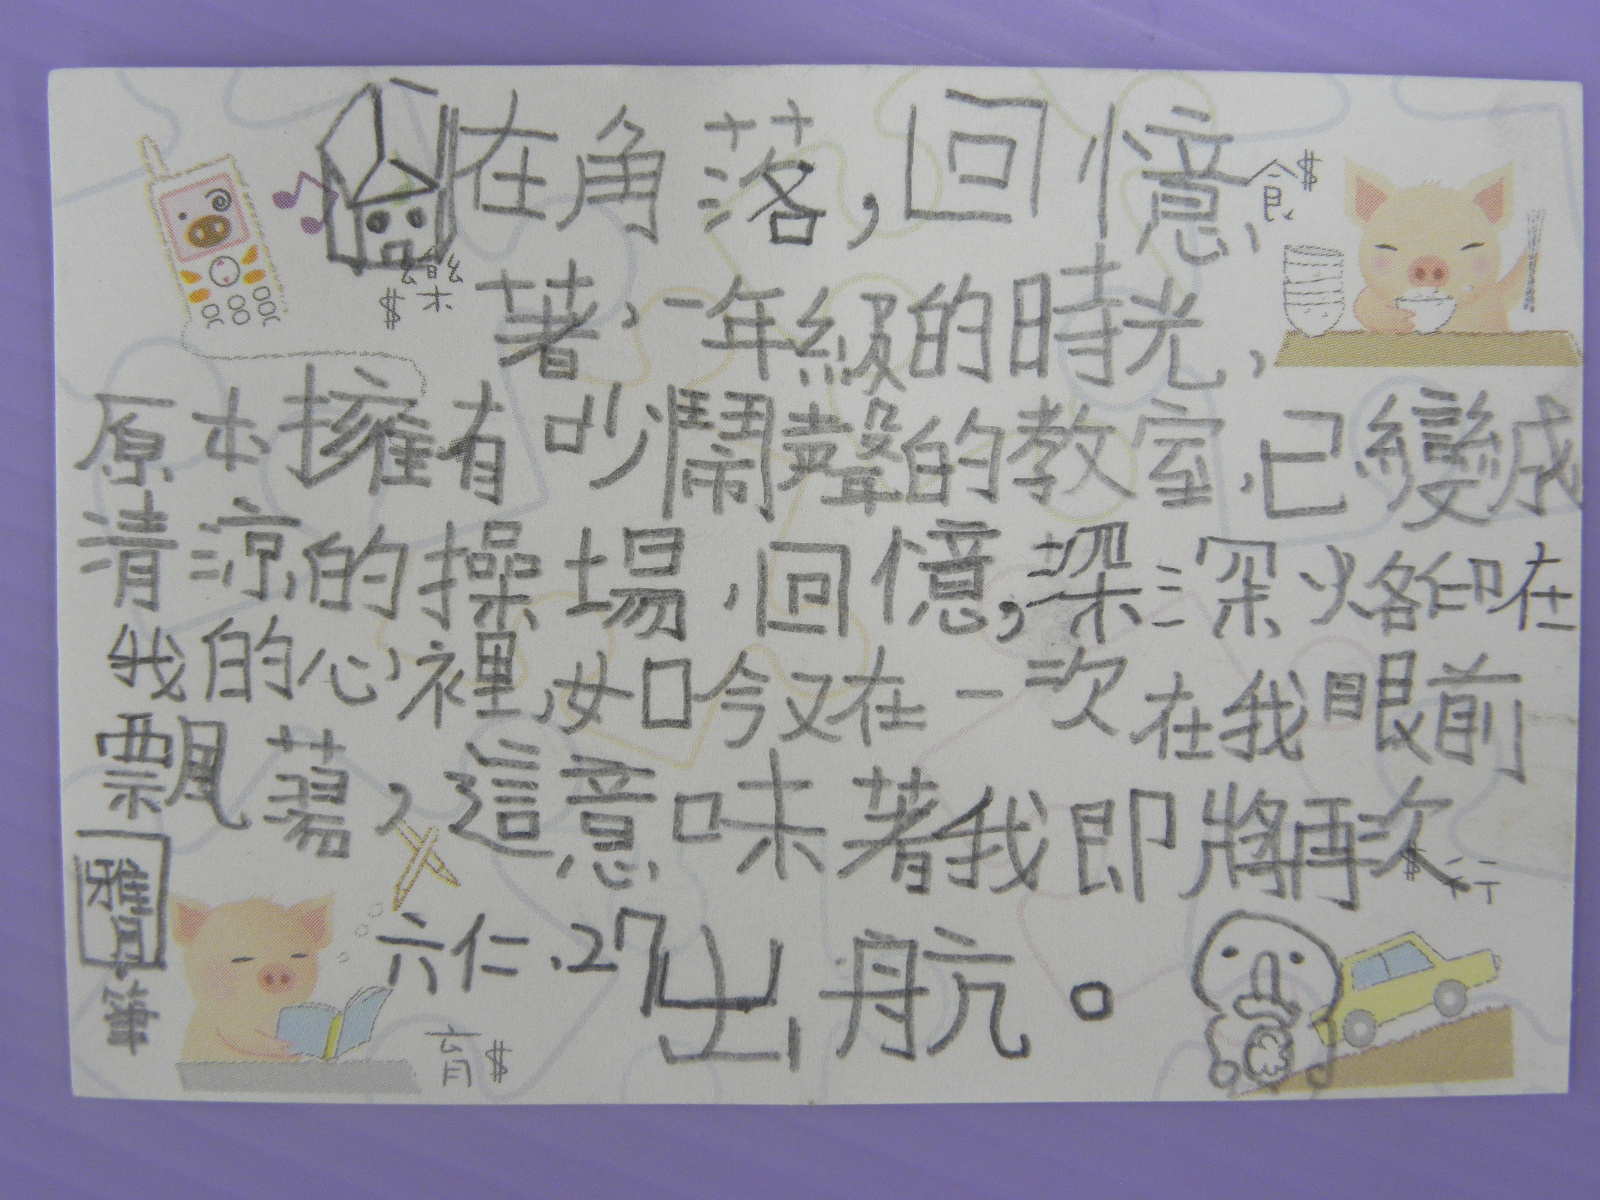 在角落,回憶
著,一年級的時光,
原本擁有吵鬧聲的教室,已變成
清涼的操場,回憶,深深烙印在
我的心裡,如今又在一次在我眼前
飄蕩,這意味著我即將再次
出航。
六仁.27
雅
筆
食$
樂$
行$
育$